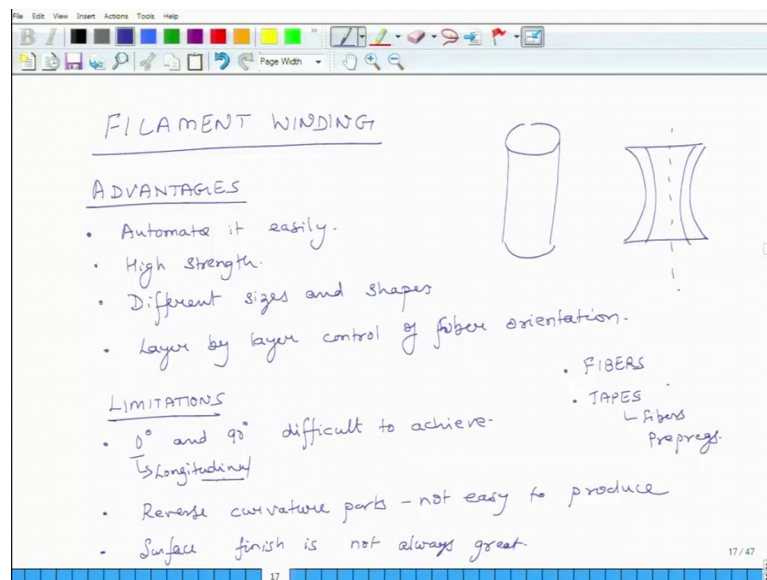 File Edit View Insert Actions Tools Help
B I
Page Width
FILAMENT WINDING
ADVANTAGES
• Automate it easily.
• High strength.
• Different sizes and shapes
• Layer by layer control of fiber orientation.
• FIBERS
• TAPES
↳ Fibers
Prepregs.
LIMITATIONS
• 0° and 90° difficult to achieve-
↳ Longitudinal
• Reverse curvature parts - not easy to produce
• Surface finish is not always great.
17 / 47
17